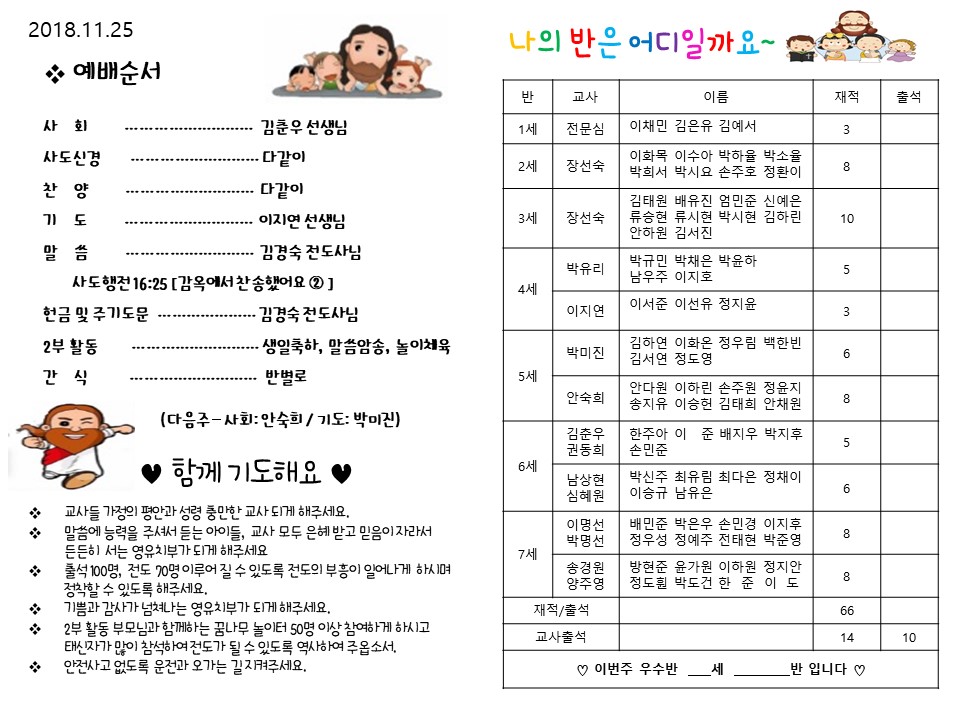 2018.11.25
❖ 예배순서
사 회 ---------------------------- 김춘우 선생님
사도신경 ---------------------------- 다같이
찬 양 ---------------------------- 다같이
기 도 ---------------------------- 이지연 선생님
말 씀 ---------------------------- 김경숙 전도사님
사도행전 16:25 [감옥에서 찬송했어요 ② ]
헌금 및 주기도문 --------------------- 김경숙 전도사님
2부 활동 ---------------------------- 생일축하, 말씀암송, 놀이체육
간 식 ---------------------------- 반별로
(다음주 – 사회: 안숙희 / 기도: 박미진)
♥ 함께 기도해요 ♥
❖ 교사들 가정의 평안과 성령 충만한 교사 되게 해주세요.
❖ 말씀에 능력을 주셔서 듣는 아이들, 교사 모두 은혜 받고 믿음이 자라서
든든히 서는 영유치부가 되게 해주세요
❖ 출석 100명, 전도 70명 이루어 질 수 있도록 전도의 부흥이 일어나게 하시며
정착할 수 있도록 해주세요.
❖ 기쁨과 감사가 넘쳐나는 영유치부가 되게 해주세요.
❖ 2부 활동 부모님과 함께하는 꿈나무 놀이터 50명 이상 참여하게 하시고
태신자가 많이 참석하여 전도가 될 수 있도록 역사하여 주옵소서.
❖ 안전사고 없도록 운전과 오가는 길 지켜주세요.
나의 반은 어디일까요~
반 교사 이름 재적 출석
1세 전문심 이채민 김은유 김예서 3
2세 장선숙 이화목 이수아 박하율 박소율 8
박희서 박시요 손주호 정환이
3세 장선숙 김태원 배유진 엄민준 신예은 10
류승현 류시현 박시현 김하린
안하원 김서진
4세 박유리 박규민 박채은 박윤하 5
남우주 이지호
이지연 이서준 이선유 정지윤 3
5세 박미진 김하연 이화온 정우림 백한빈 6
김서연 정도영
안숙희 안다원 이하린 손주원 정윤지 8
송지유 이승헌 김태희 안채원
6세 김춘우 한주아 이 준 배지우 박지후 5
권동희 손민준
남상현 박신주 최유림 최다은 정채이 6
심혜원 이승규 남유은
7세 이명선 배민준 박은우 손민경 이지후 8
박명선 정우성 정예주 전태현 박준영
송경원 방현준 윤가원 이하원 정지안 8
양주영 정도훤 박도건 한 준 이 도
재적/출석 66
교사출석 14 10
♡ 이번주 우수반 ___세 ________반 입니다 ♡